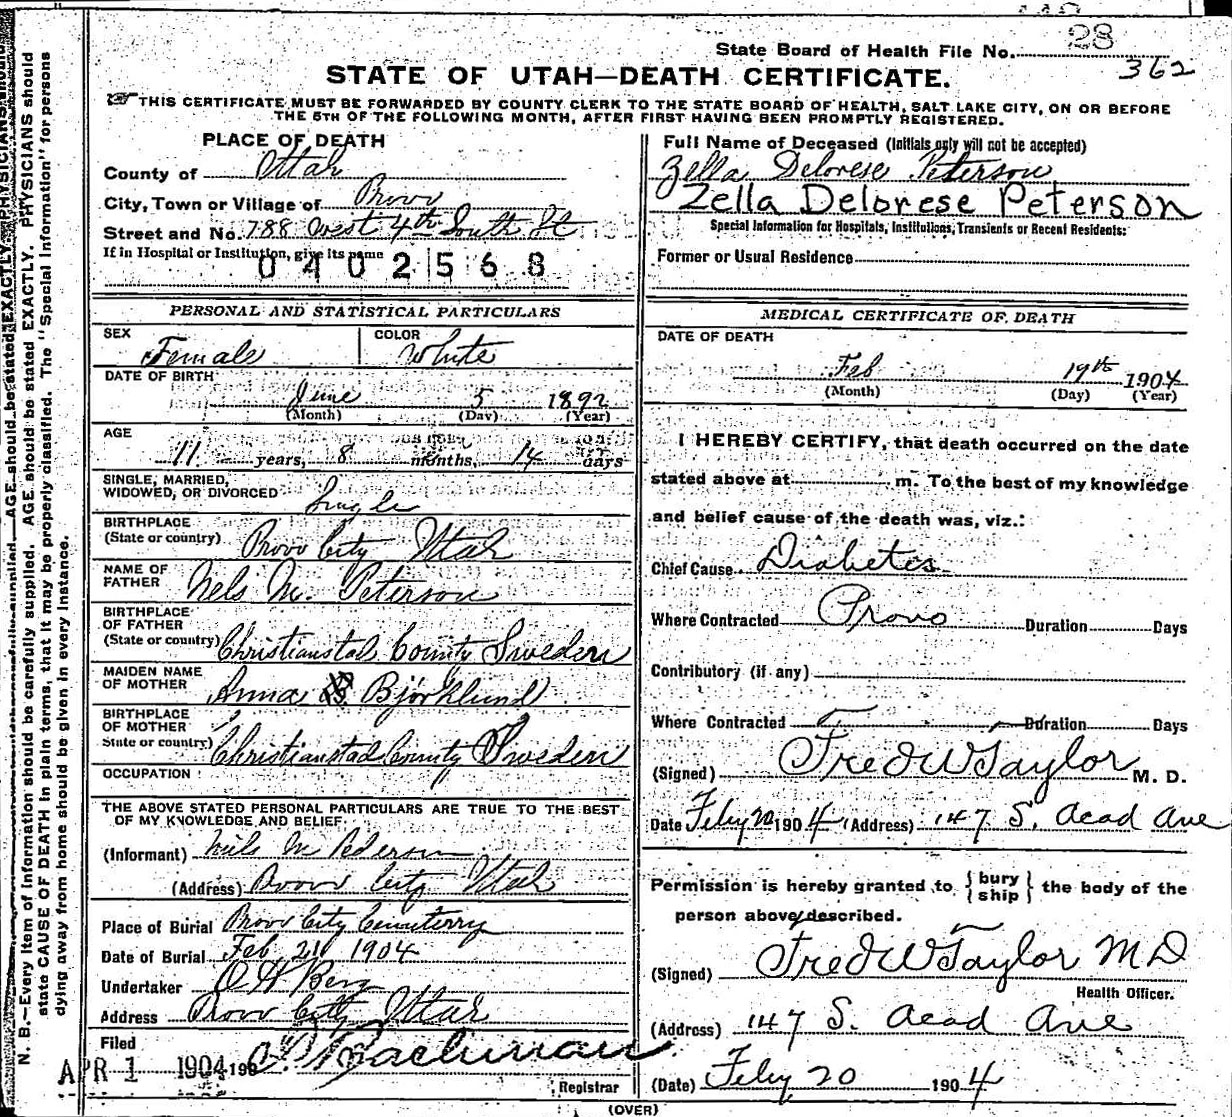 State Board of Health File No. 28
362
STATE OF UTAH—DEATH CERTIFICATE.
THIS CERTIFICATE MUST BE FORWARDED BY COUNTY CLERK TO THE STATE BOARD OF HEALTH, SALT LAKE CITY, ON OR BEFORE
THE 5TH OF THE FOLLOWING MONTH, AFTER FIRST HAVING BEEN PROMPTLY REGISTERED.
PLACE OF DEATH
County of Utah
City, Town or Village of Provo
Street and No. 788 West 4th South St
If in Hospital or Institution, give its name
0402568
Full Name of Deceased (Initials only will not be accepted)
Zella Delorese Peterson
Zella Delorese Peterson
Special Information for Hospitals, Institutions, Transients or Recent Residents:
Former or Usual Residence
PERSONAL AND STATISTICAL PARTICULARS
SEX Female COLOR White
DATE OF BIRTH
June 5 1892
(Month) (Day) (Year)
AGE
11 years, 8 months, 14 days
SINGLE, MARRIED,
WIDOWED, OR DIVORCED Single
BIRTHPLACE
(State or country) Provo City Utah
NAME OF
FATHER Nels M. Peterson
BIRTHPLACE
OF FATHER
(State or country) Christianstad County Sweden
MAIDEN NAME
OF MOTHER Anna Björklund
BIRTHPLACE
OF MOTHER
State or country) Christianstad County Sweden
OCCUPATION
THE ABOVE STATED PERSONAL PARTICULARS ARE TRUE TO THE BEST
OF MY KNOWLEDGE AND BELIEF.
(Informant) Nils M Pederson
(Address) Provo City Utah
Place of Burial Provo City Cemeterry
Date of Burial Feb 21 1904
Undertaker O H Berg
Address Provo City Utah
Filed
APR 1 1904 190
Registrar
MEDICAL CERTIFICATE OF DEATH
DATE OF DEATH
Feb 19th 1904
(Month) (Day) (Year)
I HEREBY CERTIFY, that death occurred on the date
stated above at m. To the best of my knowledge
and belief cause of the death was, viz.:
Chief Cause Diabetes
Where Contracted Provo Duration Days
Contributory (if any)
Where Contracted Duration Days
(Signed) Fred W Taylor M. D.
Date Feby 20 1904 (Address) 147 S. Acad Ave
Permission is hereby granted to { bury ship } the body of the
person above described.
(Signed) Fred W Taylor MD
Health Officer.
(Address) 147 S. Acad Ave
(Date) Feby 20 1904
(OVER)
N. B.—Every item of information should be carefully supplied. AGE should be stated EXACTLY. PHYSICIANS should
state CAUSE OF DEATH in plain terms, that it may be properly classified. The "Special Information" for persons
dying away from home should be given in every instance.